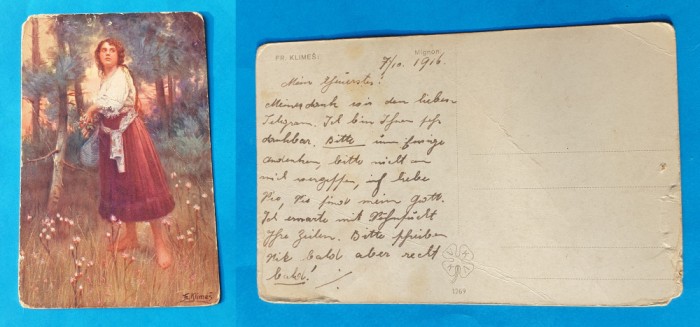 F. Klimeš
FR. KLIMEŠ:
Mignon.
7/10. 1916.
Mein Theuerster!
Meinen dank für den lieben
Telegram. Ich bin Ihnen sehr
dankbar. Bitte um Ewige
andenken, bitte nicht an
mich vergessen, ich liebe
Sie, Sie sind mein Gott.
Ich erwarte mit Sehnsucht
Ihre Zeilen. Bitte schreiben
Sie bald aber recht
bald!
1269